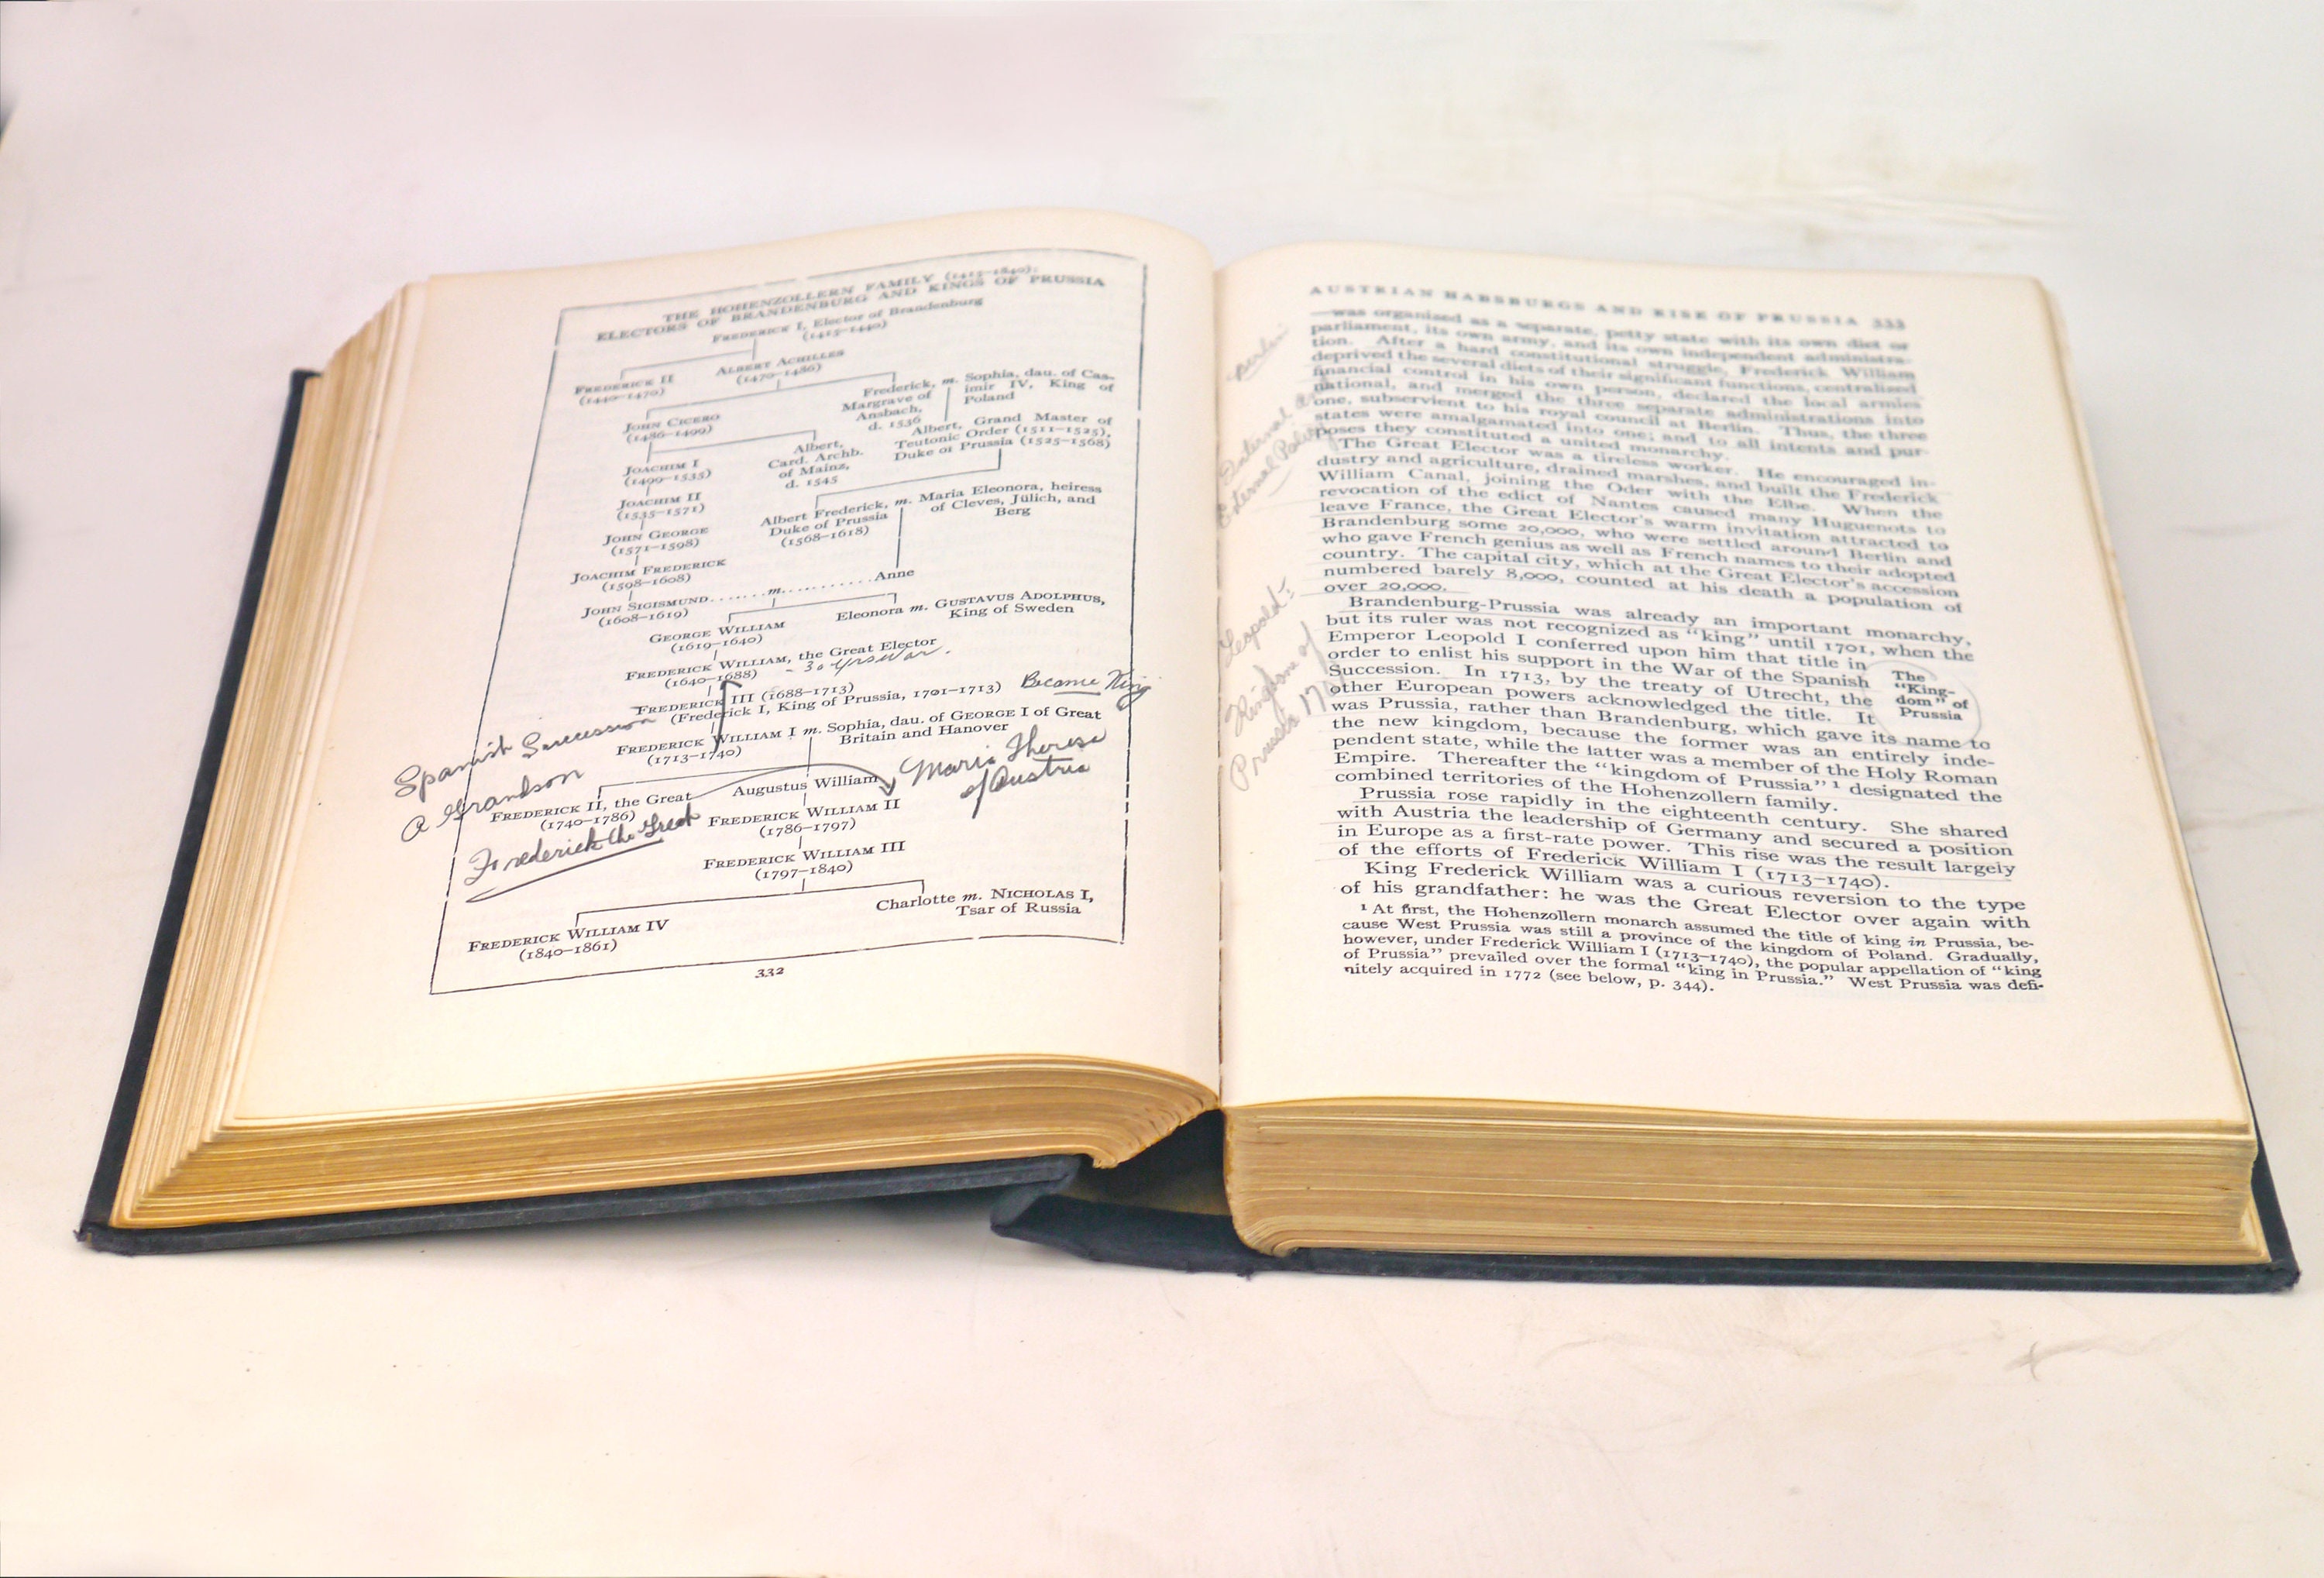 THE HOHENZOLLERN FAMILY (1415–1840):
ELECTORS OF BRANDENBURG AND KINGS OF PRUSSIA
FREDERICK I, Elector of Brandenburg
(1415–1440)
FREDERICK II
(1440–1470)
ALBERT ACHILLES
(1470–1486)
JOHN CICERO
(1486–1499)
Frederick,
Margrave of
Ansbach,
d. 1536
m. Sophia, dau. of Cas-
imir IV, King of
Poland
JOACHIM I
(1499–1535)
Albert,
Card. Archb.
of Mainz,
d. 1545
Albert, Grand Master of
Teutonic Order (1511–1525),
Duke of Prussia (1525–1568)
JOACHIM II
(1535–1571)
JOHN GEORGE
(1571–1598)
Albert Frederick,
Duke of Prussia
(1568–1618)
m. Maria Eleonora, heiress
of Cleves, Jülich, and
Berg
JOACHIM FREDERICK
(1598–1608)
JOHN SIGISMUND.......m...........Anne
(1608–1619)
GEORGE WILLIAM
(1619–1640)
Eleonora m. GUSTAVUS ADOLPHUS,
King of Sweden
FREDERICK WILLIAM, the Great Elector
(1640–1688)
- 30 yrs war.
FREDERICK III (1688–1713)
(Frederick I, King of Prussia, 1701–1713)
Became King
Spanish Succession
FREDERICK WILLIAM I m. Sophia, dau. of GEORGE I of Great
(1713–1740)
Britain and Hanover
A Grandson
FREDERICK II, the Great
(1740–1786)
Frederick the Great
Augustus William
Maria Theresa
of Austria
FREDERICK WILLIAM II
(1786–1797)
FREDERICK WILLIAM III
(1797–1840)
FREDERICK WILLIAM IV
(1840–1861)
Charlotte m. NICHOLAS I,
Tsar of Russia
332
AUSTRIAN HABSBURGS AND RISE OF PRUSSIA 333
—was organized as a separate, petty state with its own diet or
parliament, its own army, and its own independent administra-
tion. After a hard constitutional struggle, Frederick William
deprived the several diets of their significant functions, centralized
financial control in his own person, declared the local armies
national, and merged the three separate administrations into
one, subservient to his royal council at Berlin. Thus, the three
states were amalgamated into one; and to all intents and pur-
poses they constituted a united monarchy.
The Great Elector was a tireless worker. He encouraged in-
dustry and agriculture, drained marshes, and built the Frederick
William Canal, joining the Oder with the Elbe. When the
revocation of the edict of Nantes caused many Huguenots to
leave France, the Great Elector's warm invitation attracted to
Brandenburg some 20,000, who were settled around Berlin and
who gave French genius as well as French names to their adopted
country. The capital city, which at the Great Elector's accession
numbered barely 8,000, counted at his death a population of
over 20,000.
Brandenburg-Prussia was already an important monarchy,
but its ruler was not recognized as "king" until 1701, when the
Emperor Leopold I conferred upon him that title in
order to enlist his support in the War of the Spanish
Succession. In 1713, by the treaty of Utrecht, the
other European powers acknowledged the title. It
was Prussia, rather than Brandenburg, which gave its name to
the new kingdom, because the former was an entirely inde-
pendent state, while the latter was a member of the Holy Roman
Empire. Thereafter the "kingdom of Prussia" 1 designated the
combined territories of the Hohenzollern family.
The
"King-
dom" of
Prussia
Prussia rose rapidly in the eighteenth century. She shared
with Austria the leadership of Germany and secured a position
in Europe as a first-rate power. This rise was the result largely
of the efforts of Frederick William I (1713–1740).
King Frederick William was a curious reversion to the type
of his grandfather: he was the Great Elector over again with
1 At first, the Hohenzollern monarch assumed the title of king in Prussia, be-
cause West Prussia was still a province of the kingdom of Poland. Gradually,
however, under Frederick William I (1713–1740), the popular appellation of "king
of Prussia" prevailed over the formal "king in Prussia." West Prussia was defi-
nitely acquired in 1772 (see below, p. 344).
Berlin
Internal
External
Leopold
Kingdom of
Prussia